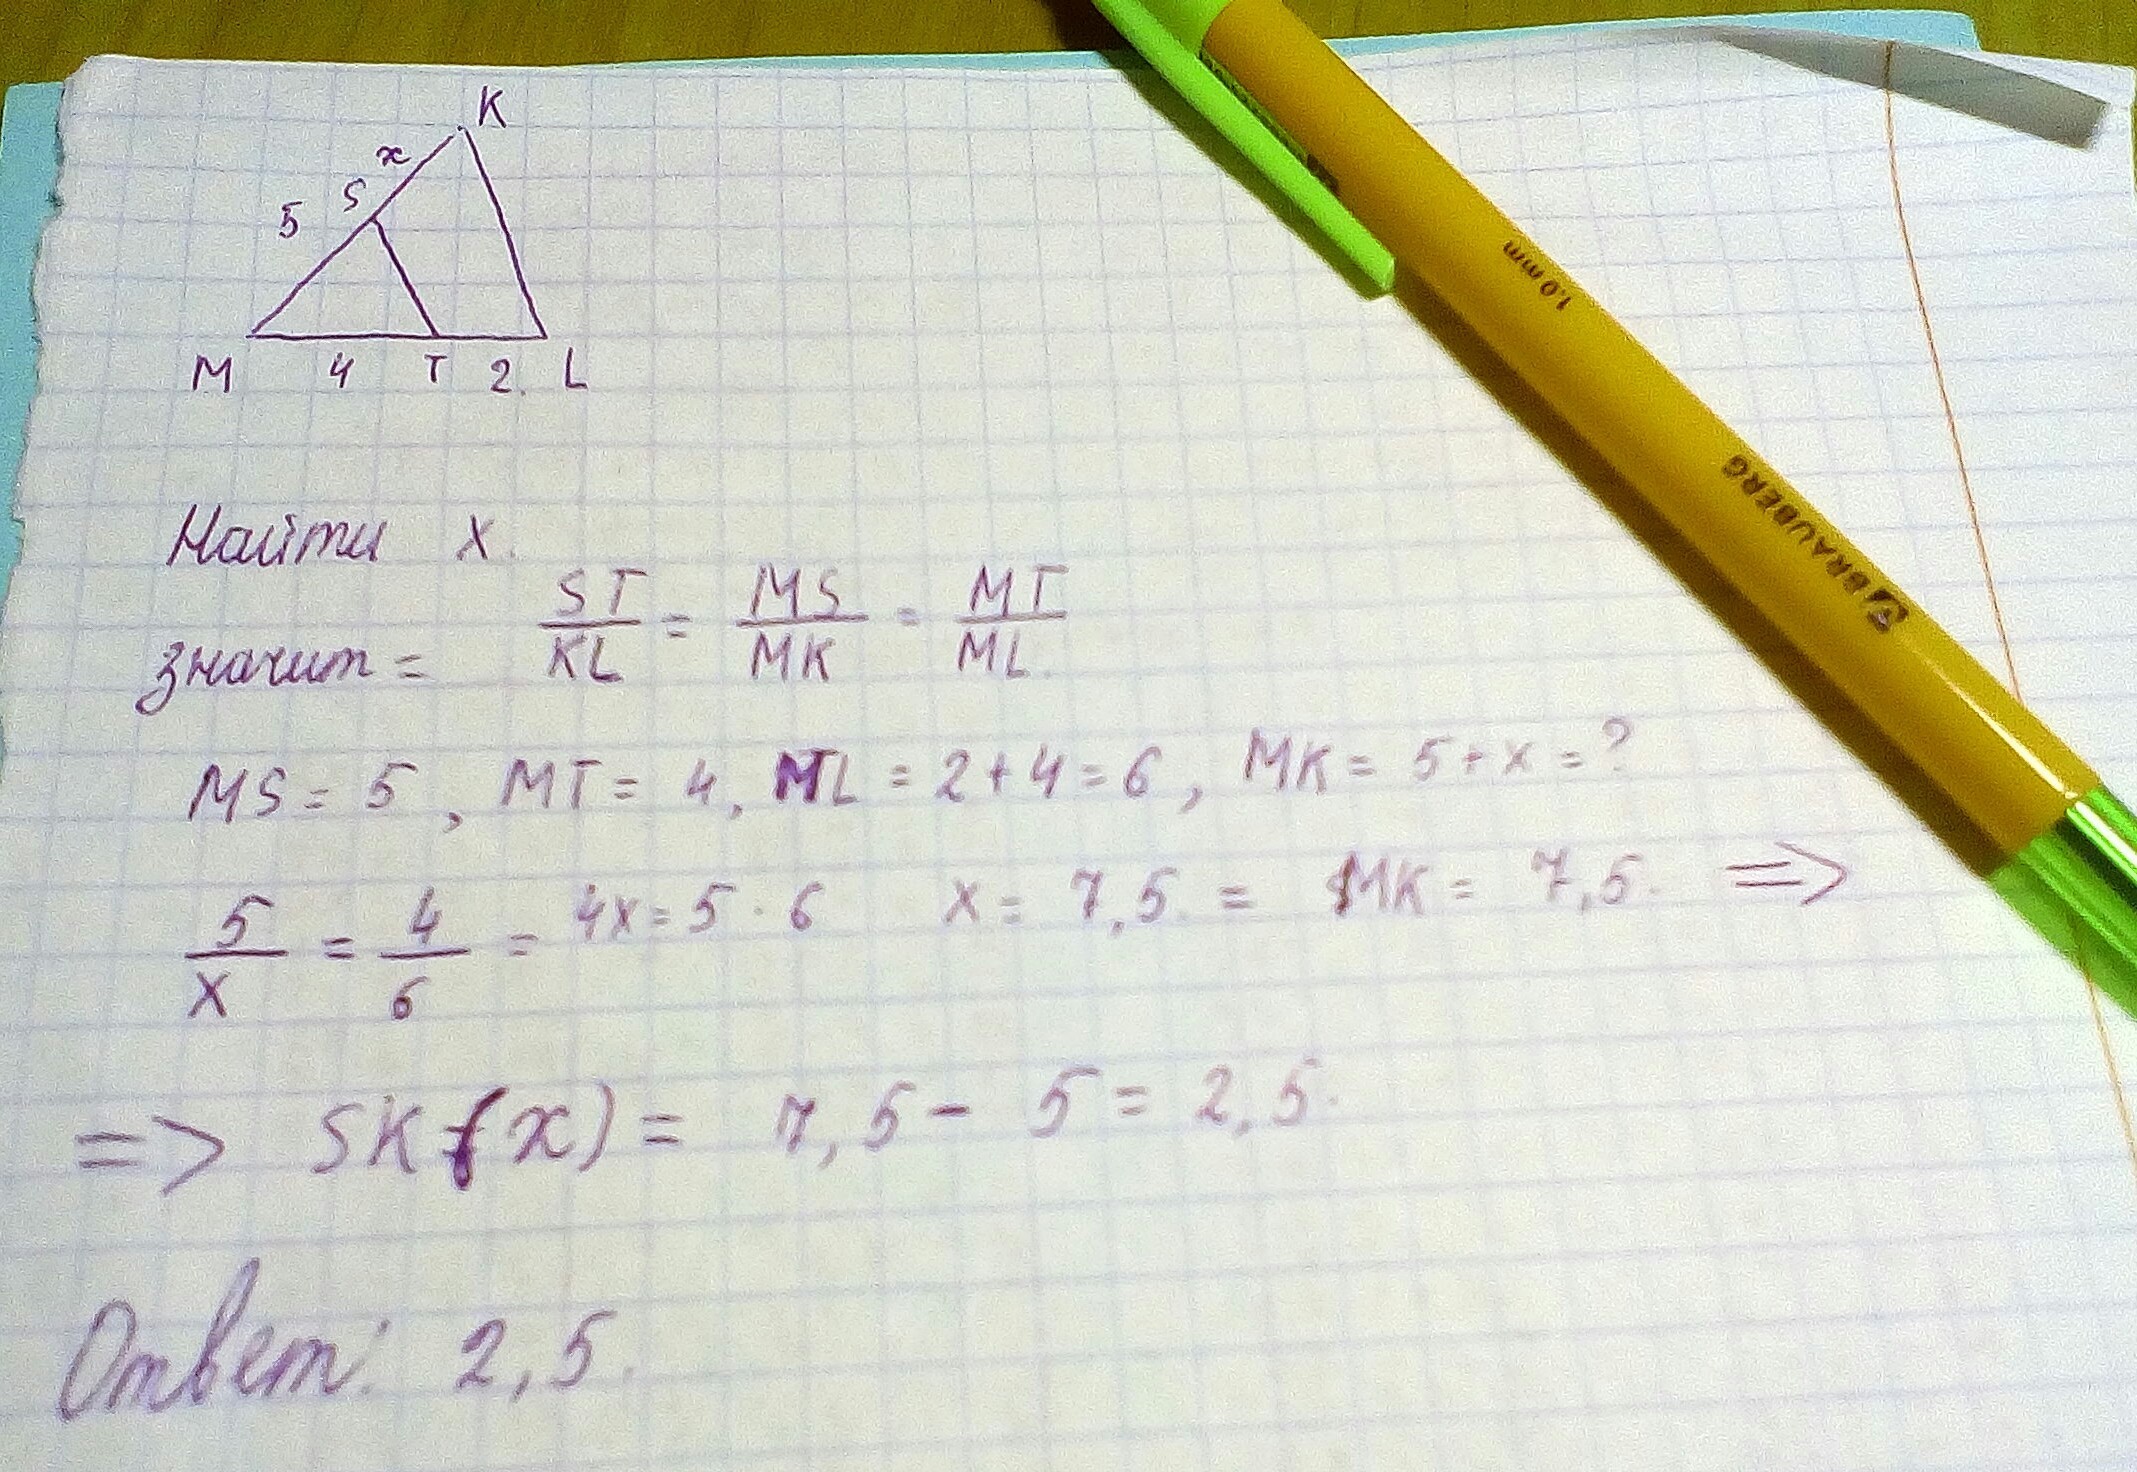 K
x
S
5
M 4 T 2. L
Найти x.
значит = ST/KL = MS/MK = MT/ML.
MS = 5, MT = 4, ML = 2+4=6, MK = 5+x=?
5/x = 4/6 = 4x=5·6 x = 7,5. = MK = 7,5. =>
=> SK (x) = 7,5 - 5 = 2,5.
Ответ: 2,5.
1.0 mm
BRAUBERG